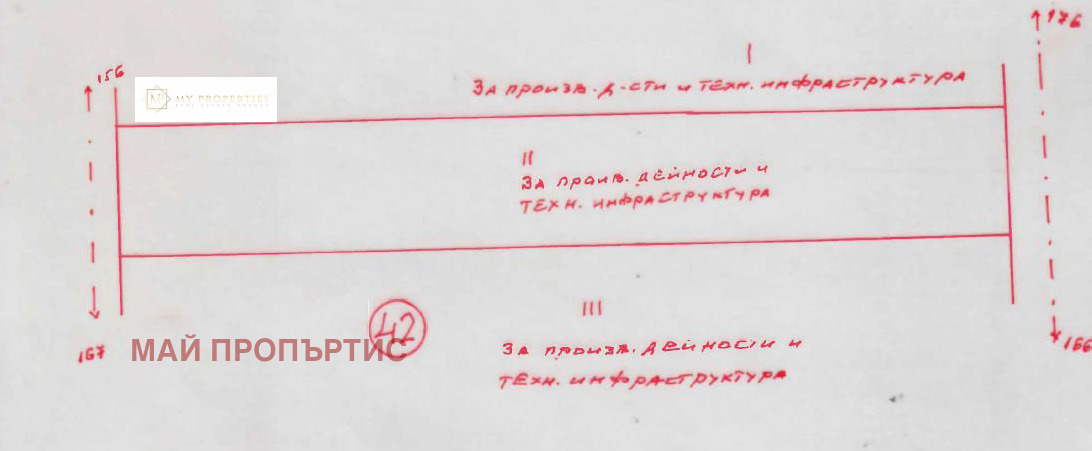 176
156
I
ЗА ПРОИЗВ. Д-СТИ И ТЕХН. ИНФРАСТРУКТУРА
MY PROPERTIES
II
ЗА ПРОИВ. ДЕЙНОСТИ И
ТЕХН. ИНФРАСТРУКТУРА
III
42
167
МАЙ ПРОПЪРТИС
ЗА ПРОИЗВ. ДЕЙНОСТИ И
166
ТЕХН. ИНФРАСТРУКТУРА